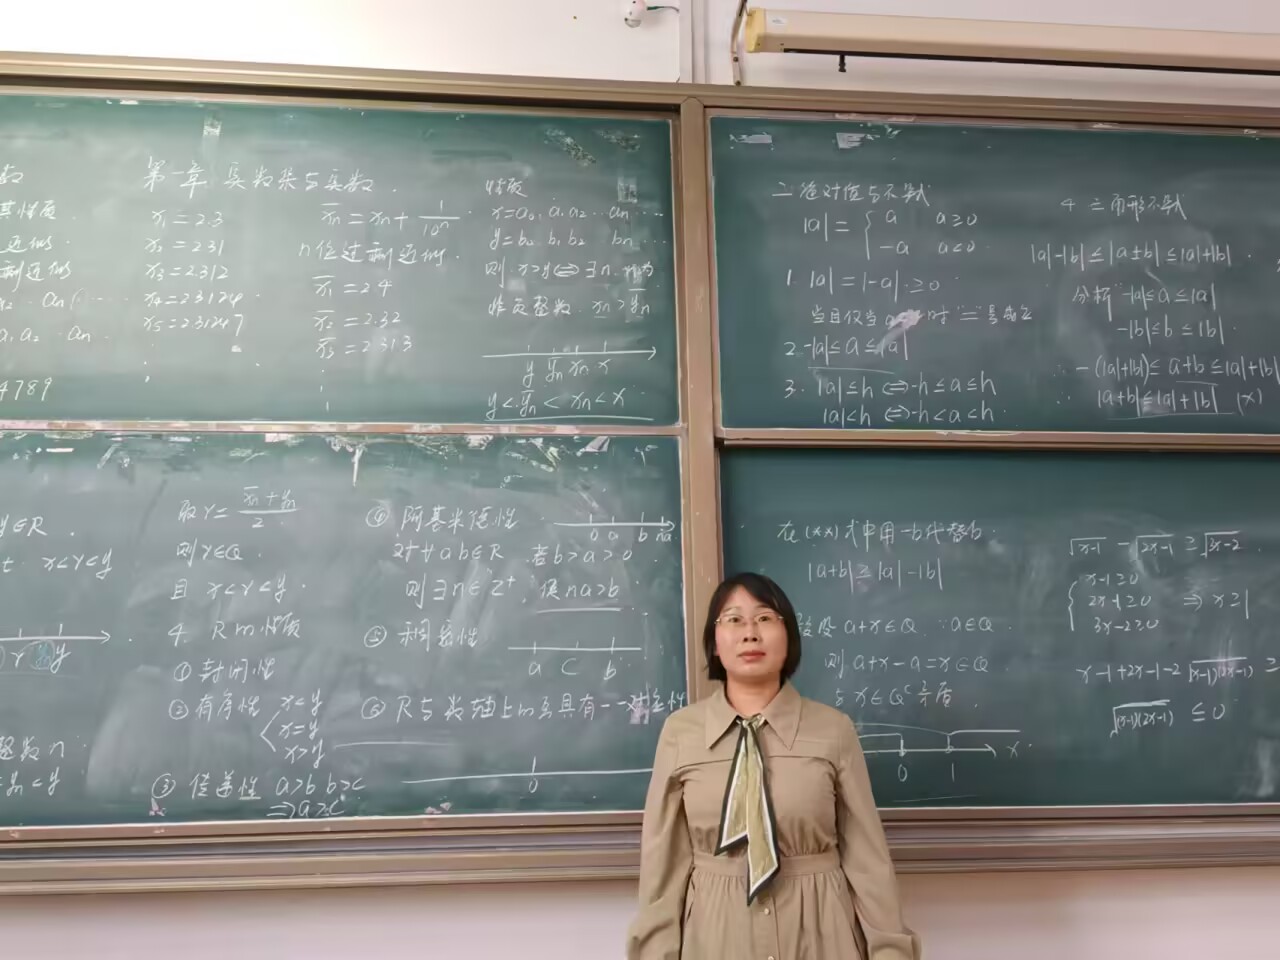 第一章 实数集与实数.
x₁=2.3
x₂=2.31
x₃=2.312
x₄=2.3124
x₅=2.31247
4789
x̄n=xn+1/10ⁿ
n位过剩近似.
x̄₁=2.4
x̄₂=2.32
x̄₃=2.313
性质
x=a₀.a₁a₂…an…
y=b₀.b₁b₂ bn…
则 x>y⇔∃n 为
非负整数. xn>ȳn
y ȳn xn x
y<ȳn<xn<x
二 绝对值与不等式
|a|={ a a≥0
-a a<0.
1. |a|=|-a|≥0
当且仅当 时"="号成立
2. -|a|≤a≤|a|
3. |a|≤h⇔-h≤a≤h
|a|<h⇔-h<a<h.
4 三角形不等式
|a|-|b|≤|a±b|≤|a|+|b|.
分析 -|a|≤a≤|a|
-|b|≤b≤|b|.
∴ -(|a|+|b|)≤a+b≤|a|+|b|
∴ |a+b|≤|a|+|b| (×)
y∈R.
x<r<y
r y
整数n
取r=(x̄n+yn)/2
则 r∈Q.
且 x<r<y.
4. R的性质
①封闭性
②有序性 x<y
x=y
x>y
③ 传递性 a>b b>c
⇒a>c
④ 阿基米德性
0 a b na
对∀ab∈R 若b>a>0
则∃n∈Z⁺, 使na>b
⑤ 稠密性
a c b
⑥ R与数轴上的点具有一一对应性
0
在(××)式中用-b代替b.
|a+b|≥|a|-|b|
假设a+x∈Q. ∵a∈Q.
则 a+x-a=x∈Q
与x∈Qᶜ矛盾.
0 1 x
√(x-1) - √(2x-1) ≥ √(3x-2).
{ x-1≥0
2x-1≥0 ⇒x≥1
3x-2≥0
x-1+2x-1-2√((x-1)(2x-1)) ≥
√((x-1)(2x-1)) ≤0